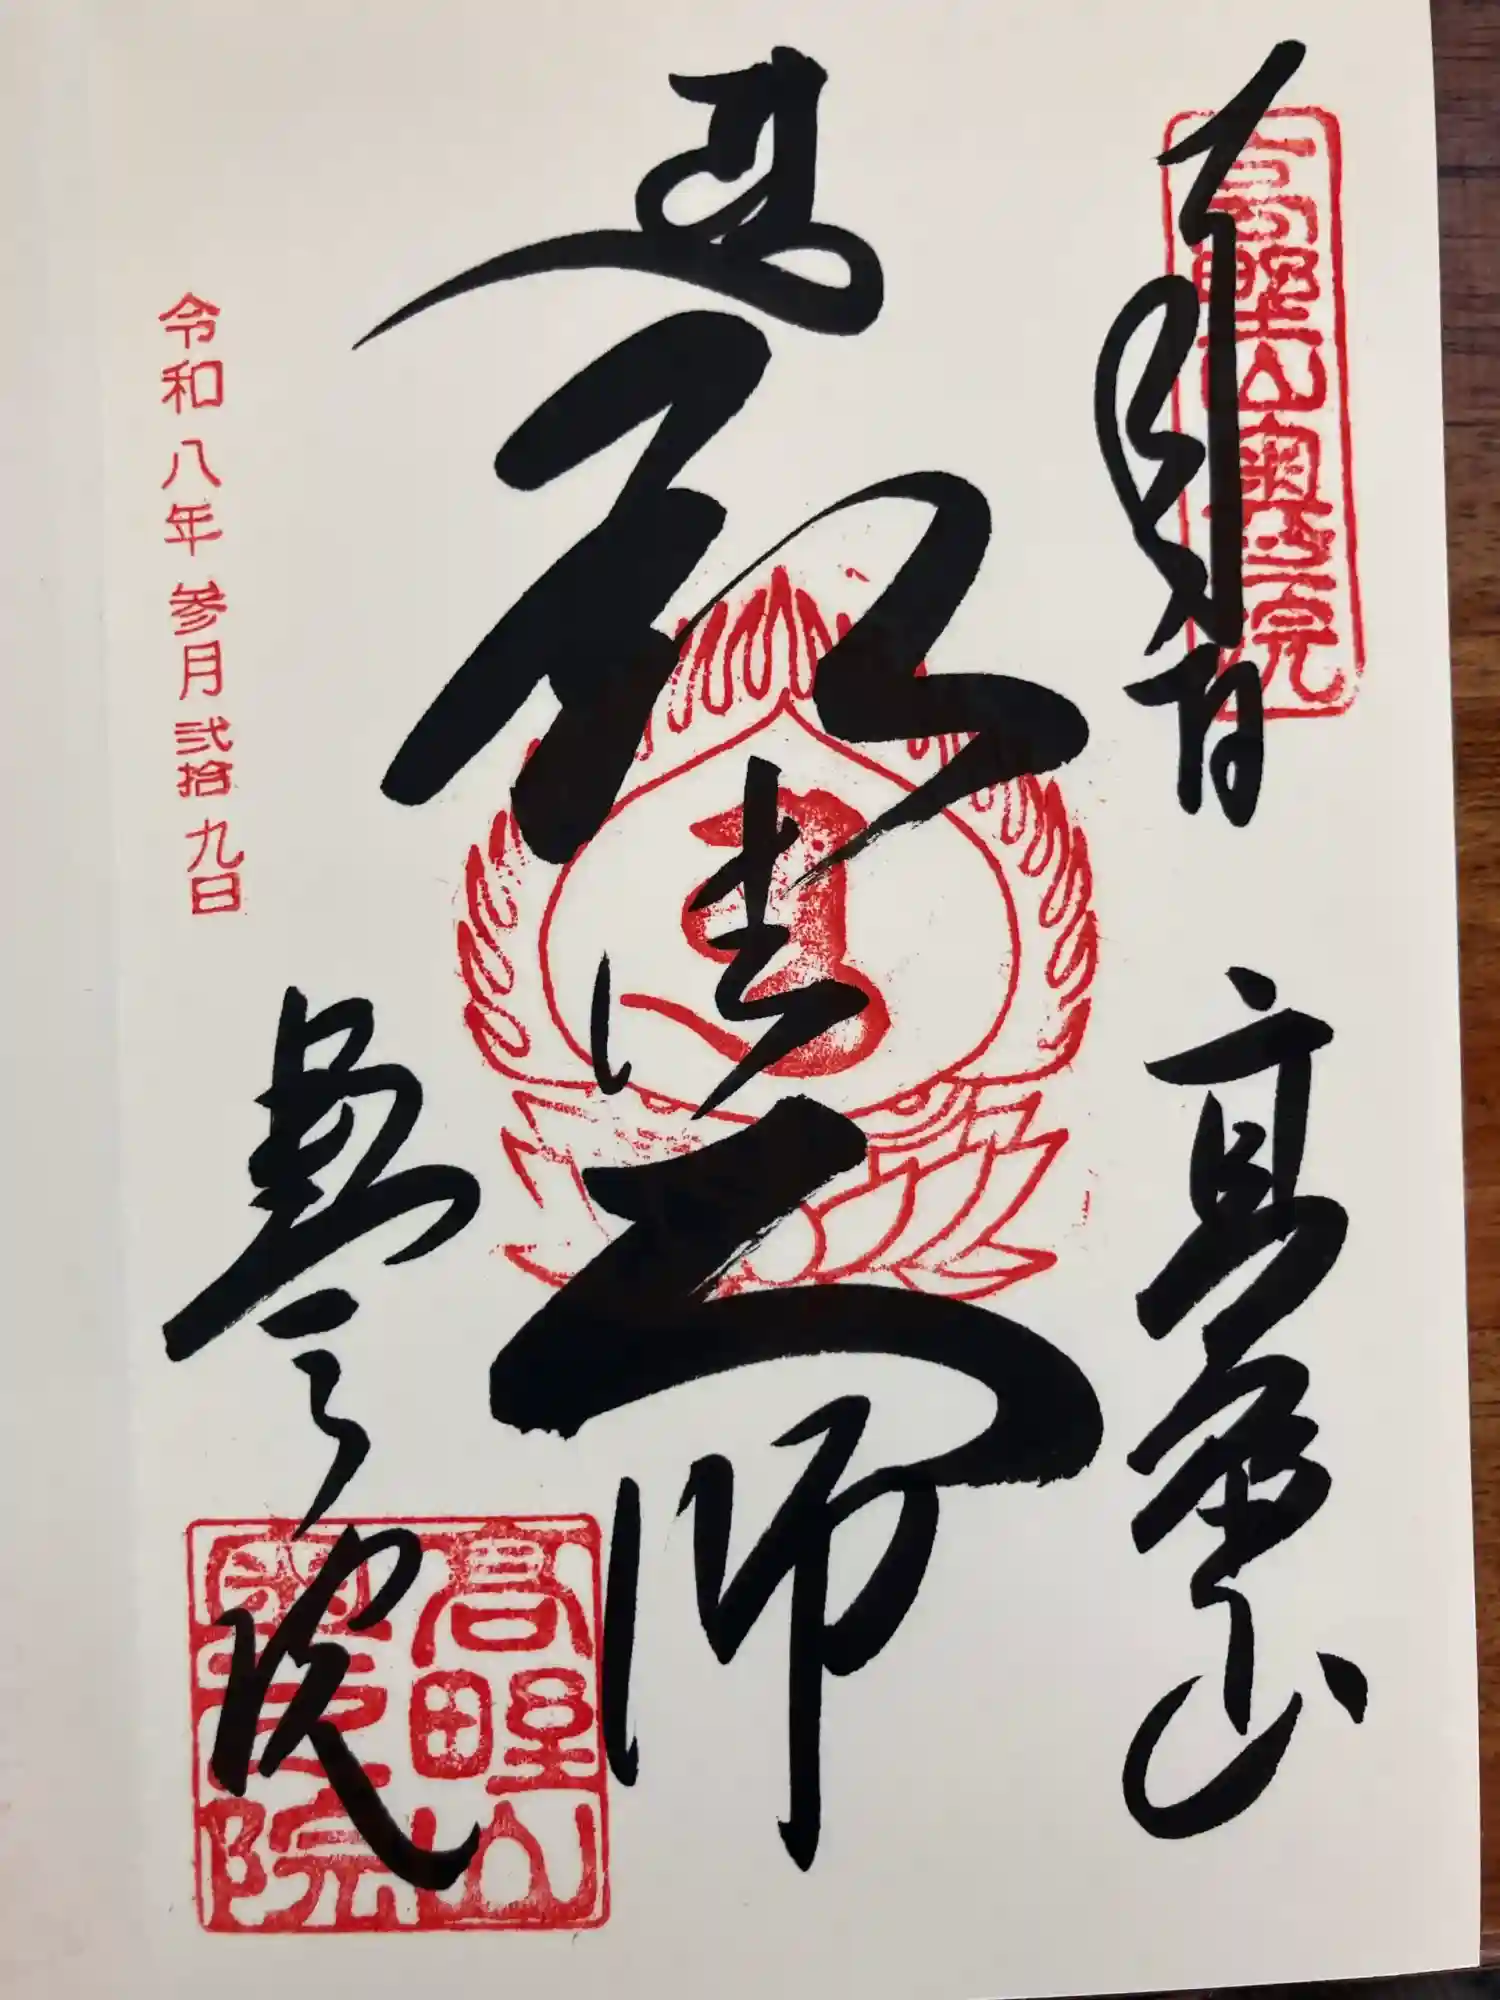 高野山奥之院
高野山
弘法大師
令和八年参月弐拾九日
奥之院
高野山
奥之院